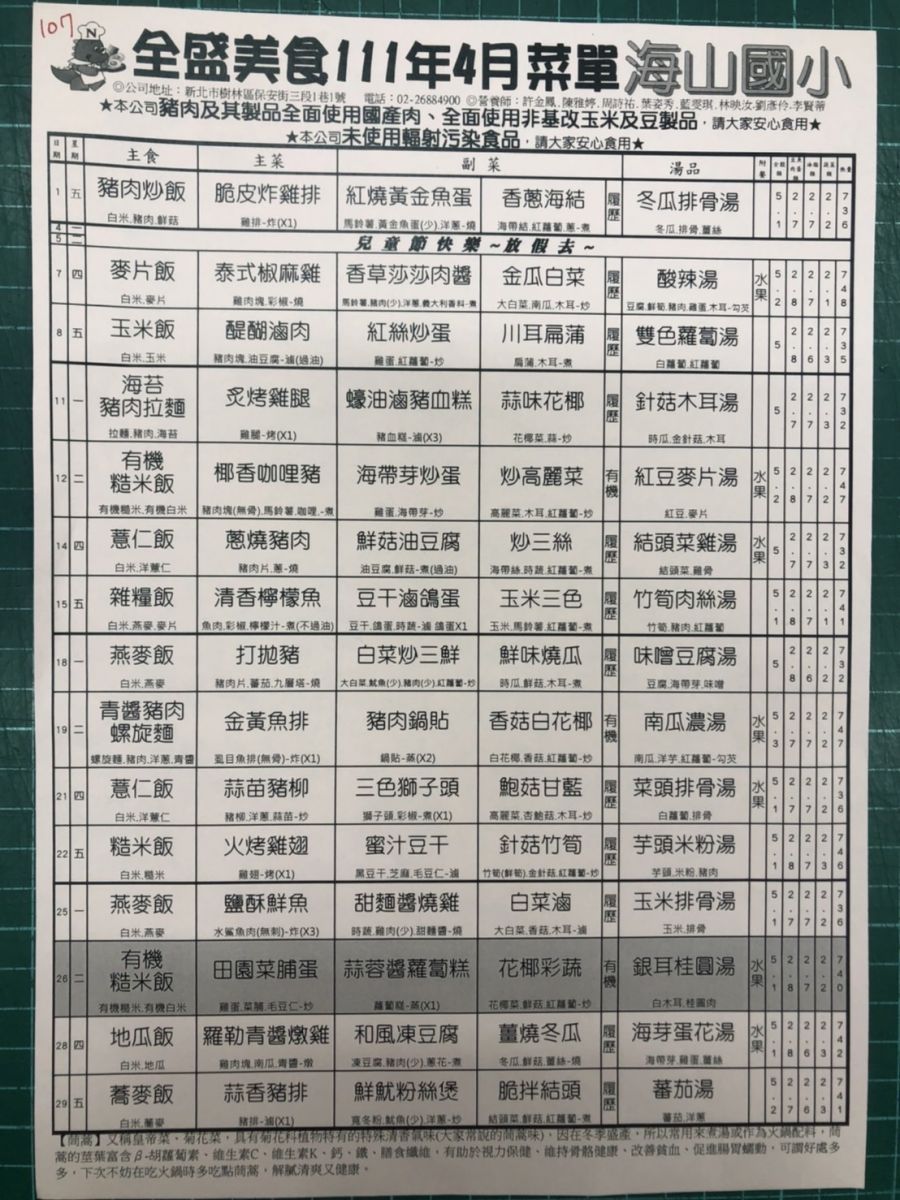 107
N
全盛美食111年4月菜單海山國小
◎公司地址：新北市樹林區保安街三段1巷1號 電話：02-26884900 ◎營養師：許金鳳、陳雅婷、周詩祐、葉姿秀、藍雯琪、林映汝、劉彥伶、李賢蒂
★本公司豬肉及其製品全面使用國產肉、全面使用非基改玉米及豆製品，請大家安心食用★
★本公司未使用輻射污染食品，請大家安心食用★
日期 星期 主食 主菜 副菜 湯品 附餐
1 五 豬肉炒飯 脆皮炸雞排 紅燒黃金魚蛋 香蔥海結 履歷 冬瓜排骨湯 5.1 2.7 2.7 2.2 736
白米.豬肉.鮮菇 雞排-炸(X1) 馬鈴薯.黃金魚蛋(少).洋蔥-燒 海帶結.紅蘿蔔.蔥-煮 冬瓜.排骨.薑絲
4 一
5 二 兒童節快樂~放假去~
7 四 麥片飯 泰式椒麻雞 香草莎莎肉醬 金瓜白菜 履歷 酸辣湯 水果 5.2 2.8 2.7 2.1 748
白米.麥片 雞肉塊.彩椒-燒 馬鈴薯.豬肉(少).洋蔥.義大利香料-煮 大白菜.南瓜.木耳-炒 豆腐.鮮筍.豬肉.雞蛋.木耳-勾芡
8 五 玉米飯 醍醐滷肉 紅絲炒蛋 川耳扁蒲 履歷 雙色蘿蔔湯 5 2.8 2.6 2.3 735
白米.玉米 豬肉塊.油豆腐-滷(過油) 雞蛋.紅蘿蔔-炒 扁蒲.木耳-煮 白蘿蔔.紅蘿蔔
11 一 海苔豬肉拉麵 炙烤雞腿 蠔油滷豬血糕 蒜味花椰 履歷 針菇木耳湯 5 2.7 2.7 2.3 732
拉麵.豬肉.海苔 雞腿-烤(X1) 豬血糕-滷(X3) 花椰菜.蒜-炒 時瓜.金針菇.木耳
12 二 有機糙米飯 椰香咖哩豬 海帶芽炒蛋 炒高麗菜 有機 紅豆麥片湯 水果 5.2 2.8 2.7 2.2 747
有機糙米.有機白米 豬肉塊(無骨).馬鈴薯.咖哩.-煮 雞蛋.海帶芽-炒 高麗菜.木耳.紅蘿蔔-炒 紅豆.麥片
14 四 薏仁飯 蔥燒豬肉 鮮菇油豆腐 炒三絲 履歷 結頭菜雞湯 水果 5 2.7 2.7 2.3 732
白米.洋薏仁 豬肉片.蔥-燒 油豆腐.鮮菇-煮(過油) 海帶絲.時蔬.紅蘿蔔-煮 結頭菜.雞骨
15 五 雜糧飯 清香檸檬魚 豆干滷鴿蛋 玉米三色 履歷 竹筍肉絲湯 5.1 2.8 2.7 2.1 741
白米.燕麥.麥片 魚肉.彩椒.檸檬汁-煮(不過油) 豆干.鴿蛋.時蔬-滷 鴿蛋X1 玉米.馬鈴薯.紅蘿蔔-煮 竹筍.豬肉.紅蘿蔔
18 一 燕麥飯 打拋豬 白菜炒三鮮 鮮味燒瓜 履歷 味噌豆腐湯 5 2.8 2.6 2.2 732
白米.燕麥 豬肉片.蕃茄.九層塔-燒 大白菜.魷魚(少).豬肉(少).紅蘿蔔-炒 時瓜.鮮菇.木耳-煮 豆腐.海帶芽.味噌
19 二 青醬豬肉螺旋麵 金黃魚排 豬肉鍋貼 香菇白花椰 有機 南瓜濃湯 水果 5.3 2.7 2.7 2.2 747
螺旋麵.豬肉.洋蔥.青醬 虱目魚排(無骨)-炸(X1) 鍋貼-蒸(X2) 白花椰.香菇.紅蘿蔔-炒 南瓜.洋芋.紅蘿蔔-勾芡
21 四 薏仁飯 蒜苗豬柳 三色獅子頭 鮑菇甘藍 履歷 菜頭排骨湯 水果 5.1 2.7 2.7 2.2 736
白米.洋薏仁 豬柳.洋蔥.蒜苗-炒 獅子頭.彩椒-煮(X1) 高麗菜.杏鮑菇.木耳-炒 白蘿蔔.排骨
22 五 糙米飯 火烤雞翅 蜜汁豆干 針菇竹筍 履歷 芋頭米粉湯 5.1 2.8 2.7 2.3 746
白米.糙米 雞翅-烤(X1) 黑豆干.芝麻.毛豆仁-滷 竹筍(鮮筍).金針菇.紅蘿蔔-炒 芋頭.米粉.豬肉
25 一 燕麥飯 鹽酥鮮魚 甜麵醬燒雞 白菜滷 履歷 玉米排骨湯 5.1 2.7 2.7 2.2 736
白米.燕麥 水鯊魚肉(無刺)-炸(X3) 時蔬.雞肉(少).甜麵醬-燒 大白菜.香菇.木耳-滷 玉米.排骨
26 二 有機糙米飯 田園菜脯蛋 蒜蓉醬蘿蔔糕 花椰彩蔬 有機 銀耳桂圓湯 水果 5.1 2.8 2.7 2.2 740
有機糙米.有機白米 雞蛋.菜脯.毛豆仁-炒 蘿蔔糕-蒸(X1) 花椰菜.鮮菇.紅蘿蔔-炒 白木耳.桂圓肉
28 四 地瓜飯 羅勒青醬燉雞 和風凍豆腐 薑燒冬瓜 履歷 海芽蛋花湯 水果 5.1 2.8 2.6 2.3 742
白米.地瓜 雞肉塊.南瓜.青醬-燉 凍豆腐.豬肉(少).蔥花-煮 冬瓜.鮮菇.薑絲-燒 海帶芽.雞蛋.薑絲
29 五 蕎麥飯 蒜香豬排 鮮魷粉絲煲 脆拌結頭 履歷 蕃茄湯 5.2 2.7 2.6 2.3 741
白米.蕎麥 豬排-滷(X1) 寬冬粉.魷魚(少).洋蔥-炒 結頭菜.鮮菇.紅蘿蔔-煮 蕃茄.洋蔥
【茼蒿】又稱皇帝菜、菊花菜，具有菊花科植物特有的特殊清香氣味(大家常說的茼蒿味)，因在冬季盛產，所以常用來煮湯或作為火鍋配料，茼
蒿的莖葉富含β-胡蘿蔔素、維生素C、維生素K、鈣、鐵、膳食纖維，有助於視力保健、維持骨骼健康、改善貧血、促進腸胃蠕動，可謂好處多
多，下次不妨在吃火鍋時多吃點茼蒿，解膩清爽又健康。